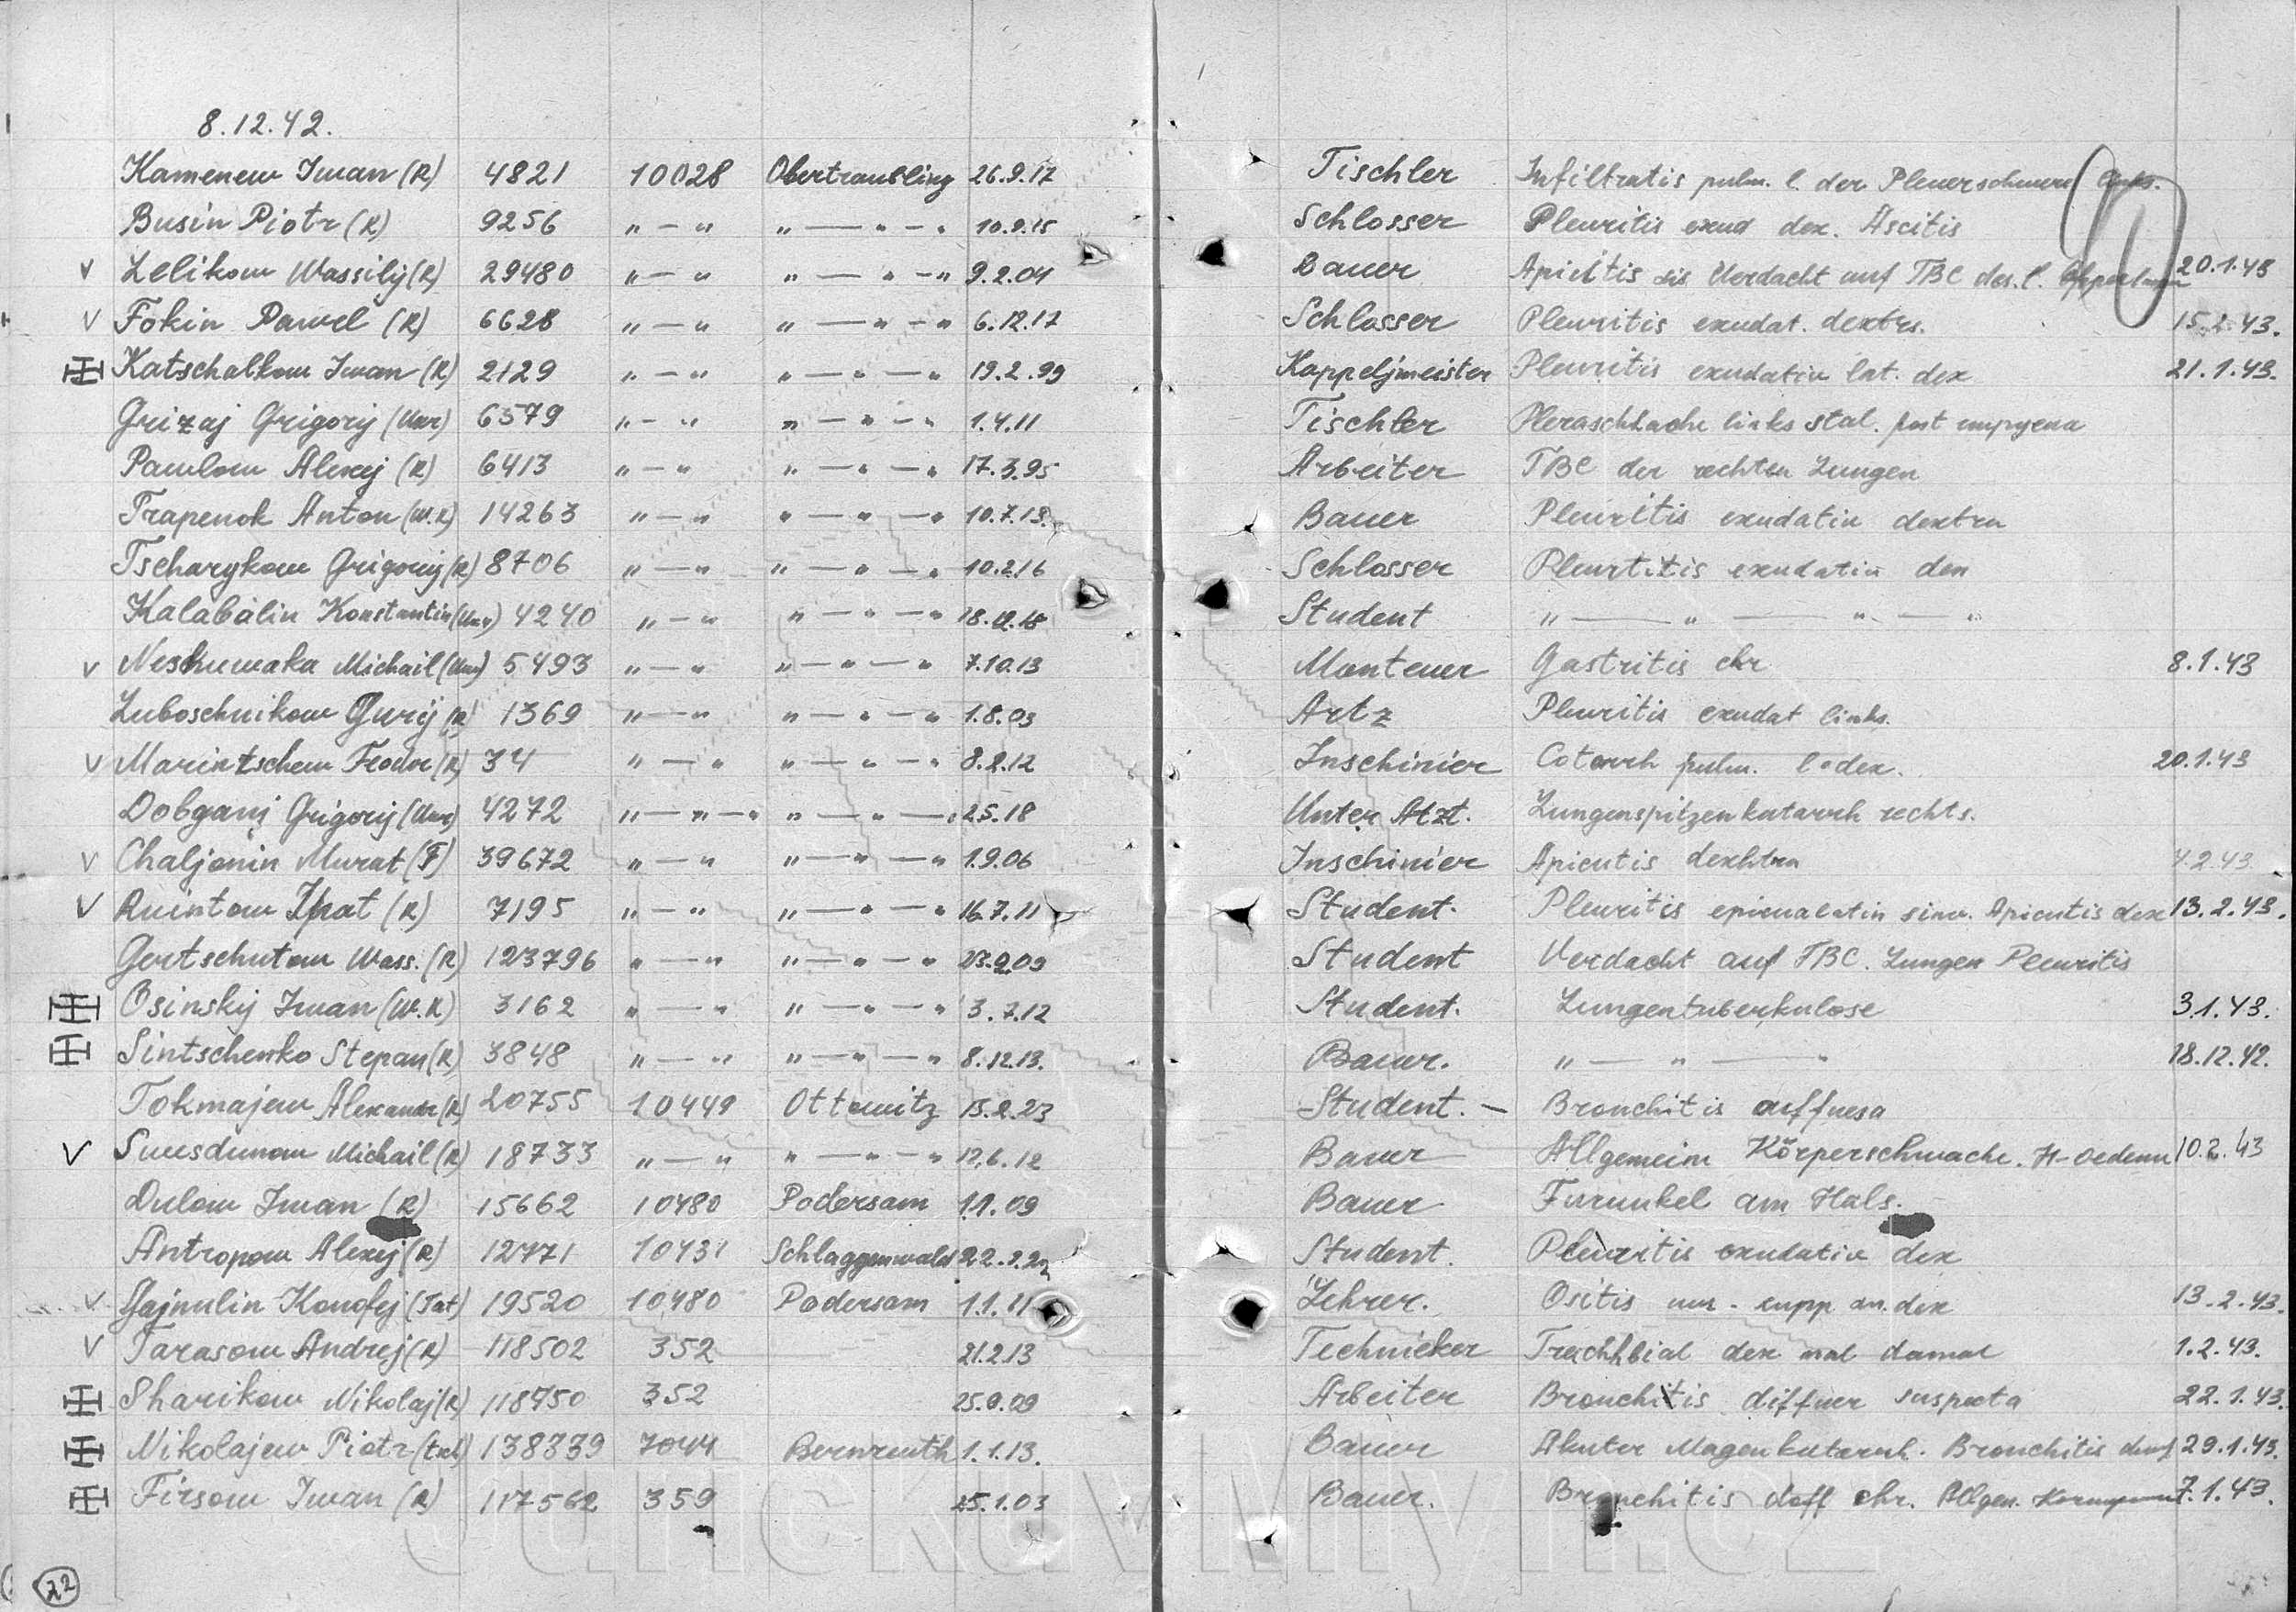 8.12.42.
Kamenew Iwan (R) 4821 10028 Obertraubling 26.9.17 Tischler Infiltratis pulm. l. der Pleuerschwere links.
Busin Piotr (R) 9256 " — " " — " — " 10.9.15 Schlosser Pleuritis exud dex. Ascitis
v Zelikow Wassilij (R) 29480 " — " " — " — " 9.2.04 Bauer Apicitis sis Verdacht auf TBC des. l. 20.1.43
v Fokin Pawel (R) 6628 " — " " — " — " 6.12.17 Schlosser Pleuritis exudat. dextrs. 15.2.43.
Katschalkow Iwan (R) 2129 " — " " — " — " 19.2.99 Kappeljmeister Pleuritis exudativ lat. dex 21.1.43.
Grizaj Grigorij (Ukr) 6579 " — " " — " — " 1.4.11 Tischler links stal. post
Pawlow Alexej (R) 6413 " — " " — " — " 17.3.95 Arbeiter TBC der rechten Lungen
Trapenok Anton (W.R) 14263 " — " " — " — " 10.7.13. Bauer Pleuritis exudativ dextra
Tscharykow Grigorij (R) 8706 " — " " — " — " 10.2.16 Schlosser Pleurtitis exudativ dex
Kalabalin Konstantin (Ukr) 4240 " — " " — " — " Student " — " — " — "
v Neshuwaka Michail (Ukr) 5493 " — " " — " — " 7.10.13 Monteuer Gastritis chr 8.1.43
Luboschnikow Gurij (R) 1369 " — " " — " — " 1.8.03 Artz Pleuritis exudat links.
v Marintschew Feodor (R) 34 " — " " — " — " 8.2.12 Inschinier Cotarrh pulm. l. dex. 20.1.43
Dobganj Grigorij (Ukr) 4272 " — " — " " — " — " 2.5.18 Unter Atzt. Lungenspitzenkatarrh rechts.
v Chaljonin Murat (T) 39672 " — " " — " — " 1.9.06 Inschinier Apicutis 4.2.43.
v Quintow Ipat (R) 7195 " — " " — " — " 16.7.11 Student. Pleuritis sinv. Apicutis dex 13.2.43.
Gortschutow Wass. (R) 123796 " — " " — " — " Student Verdacht auf TBC. Lungen Pleuritis
Osinskij Iwan (W.R) 3162 " — " " — " — " 3.7.12 Student. Lungentuberkulose 3.1.43.
Sintschenko Stepan (R) 3848 " — " " — " — " 8.12.13. Bauer. " — " — " 18.12.42.
Tokmajew Alexandr (R) 20755 10449 Ottowitz 15.2.23 Student. — Bronchitis
v Swesdunow Michail (R) 18733 " — " " — " — " 12.6.12 Bauer Allgemeine Körperschwache. H-Oedemn 10.2.43
Dulow Iwan (R) 15662 10480 Podersam 1.1.09 Bauer Furunkel am Hals.
Antropow Alexej (R) 12771 10431 Schlaggenwald Student. Pleuritis exudativ dex
v Gajnulin Konofej (Tat) 19520 10480 Podersam 1.1.11 Lehrer. dex 13.2.43.
v Tarasow Andrej (R) 118502 352 21.2.13 Technicker dex 1.2.43.
Sharikow Nikolaj (R) 118750 352 25.9.09 Arbeiter Bronchitis diffuer suspecta 22.1.43.
Nikolajew Piotr 138339 7044 Bernreuth 1.1.13. Bauer Akuter Magenkatarrh. Bronchitis 29.1.43.
Firsow Iwan (R) 117562 359 25.1.03 Bauer. Bronchitis chr. Allgem. 7.1.43.
22